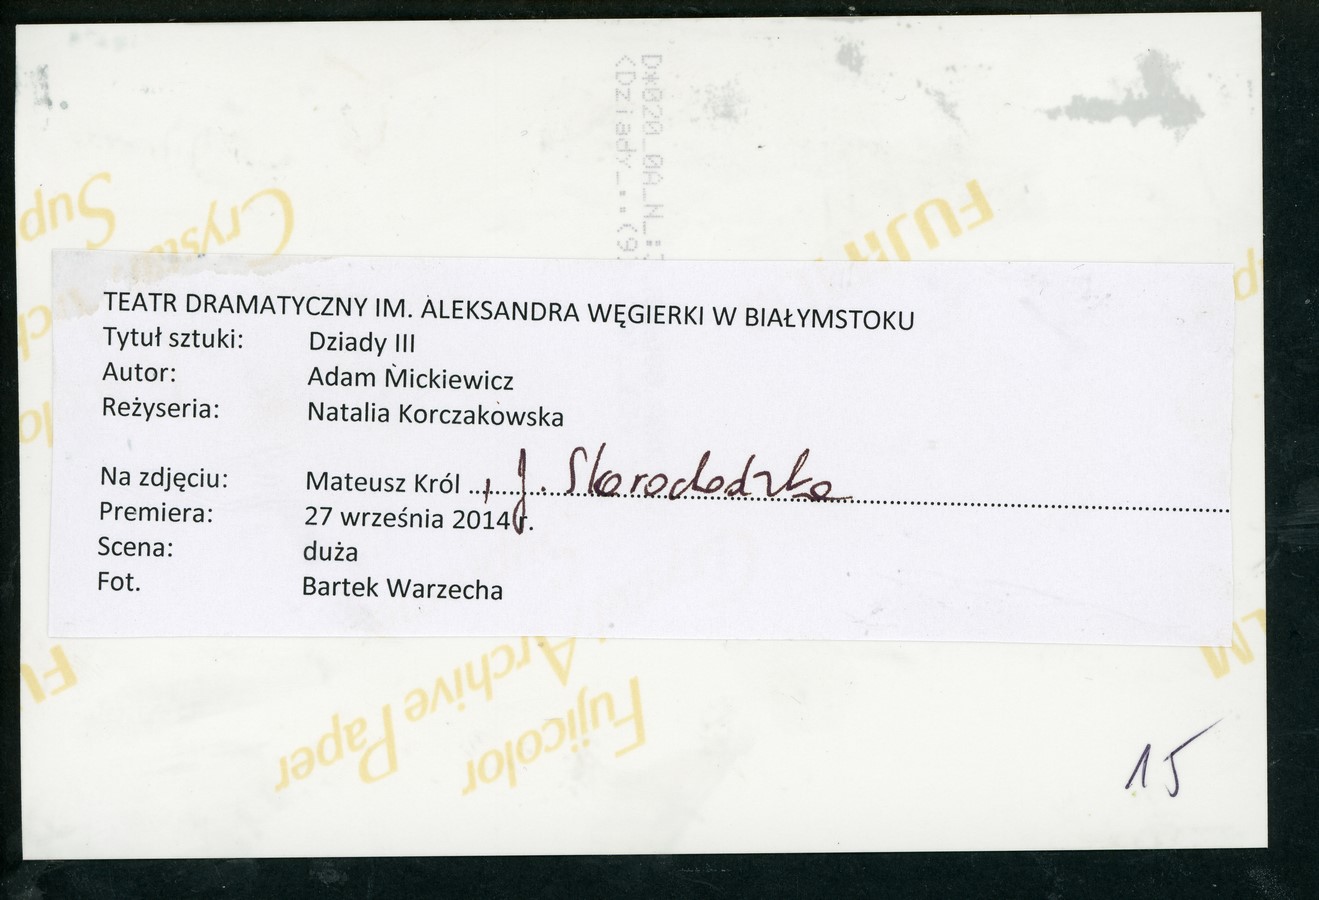 D*020_0A_N_
<Dziady_
Sup
Crysta
FUJI
TEATR DRAMATYCZNY IM. ALEKSANDRA WĘGIERKI W BIAŁYMSTOKU
Tytuł sztuki: Dziady III
Autor: Adam Mickiewicz
Reżyseria: Natalia Korczakowska
Na zdjęciu: Mateusz Król , J. Skorochodzka
Premiera: 27 września 2014 r.
Scena: duża
Fot. Bartek Warzecha
Fujicolor
Archive Paper
FU
LM
15